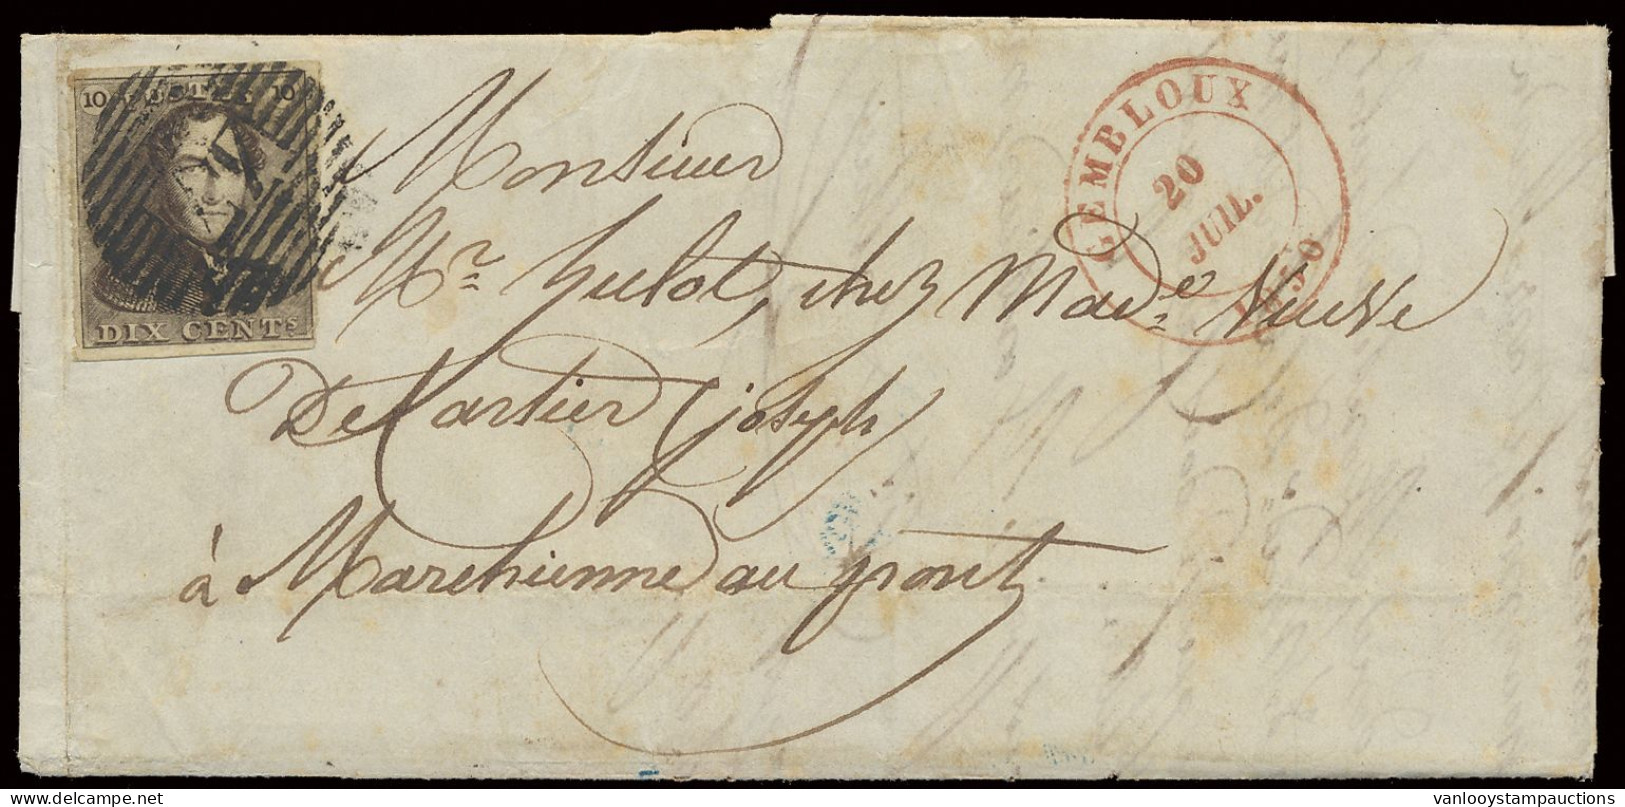 10 POSTES 10
DIX CENTS
GEMBLOUX
20
JUIL.
1850
Monsieur
Mr hulot, chez Made Veuve
De Cartier Joseph
à Marchienne au pont
vanlooystampauctions